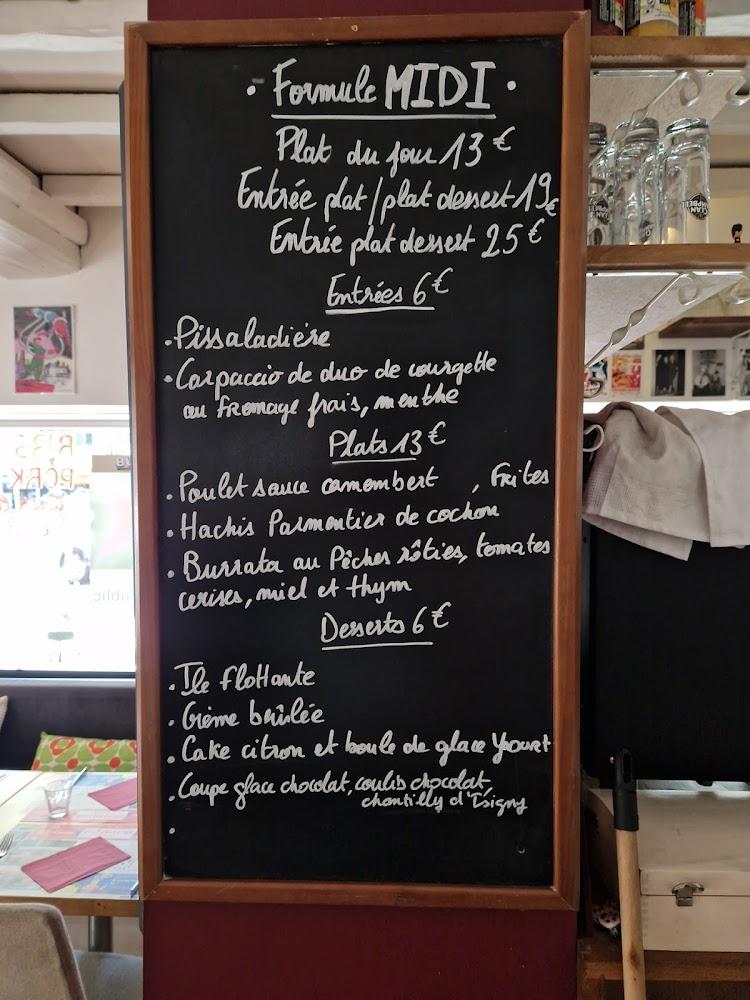 · Formule MIDI ·
Plat du jour 13 €
Entrée plat / plat dessert 19€
Entrée plat dessert 25 €
Entrées 6 €
· Pissaladière
· Carpaccio de duo de courgette
au fromage frais, menthe
Plats 13 €
· Poulet sauce camembert , Frites
· Hachis Parmentier de cochon
· Burrata au Pêches rôties, tomates
cerises, miel et thym
Desserts 6 €
· Ile flottante
· Crème brûlée
· Cake citron et boule de glace Yaourt
· Coupe glace chocolat, coulis chocolat,
chantilly d'Isigny
·
RIBS
PORK